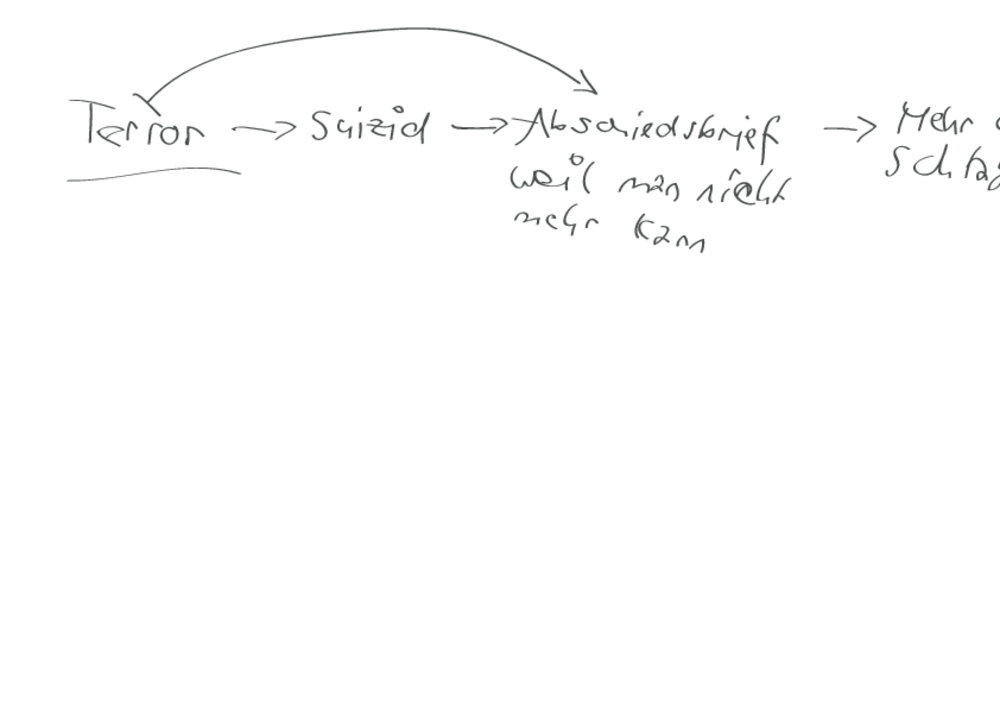 Terror → Suizid → Abschiedsbrief → Mehr
weil man nicht
mehr kann